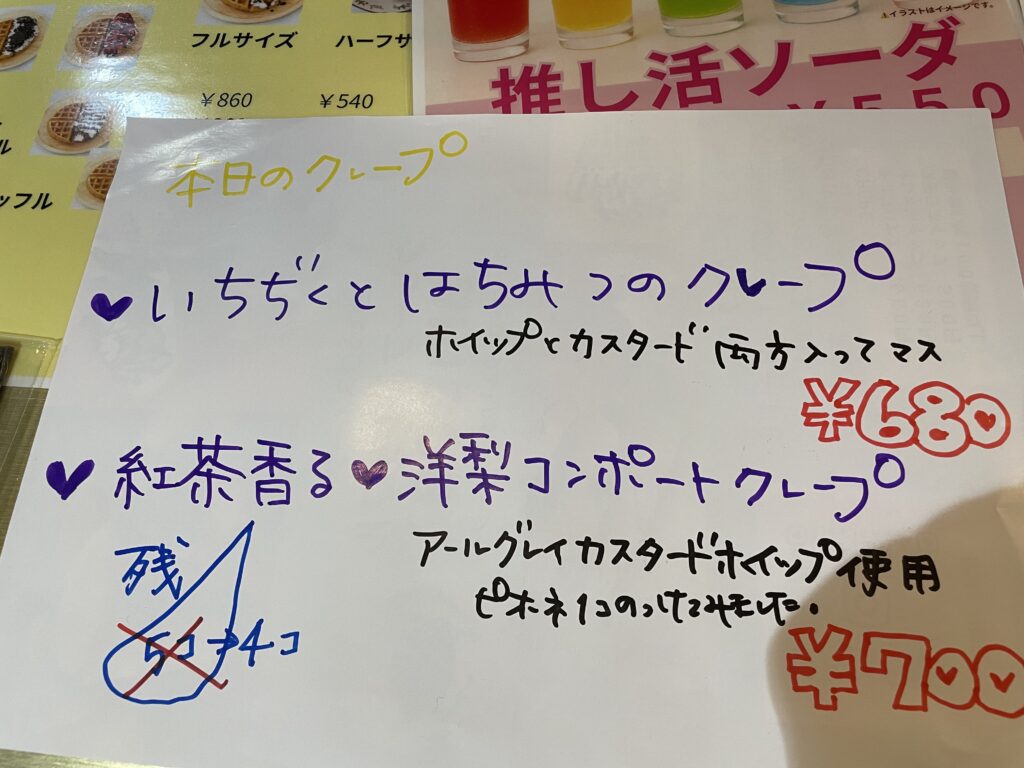 フルサイズ ハーフサ
¥860 ¥540
ル
ッフル
⚠イラストはイメージです。
推し活ソーダ
¥550
本日のクレープ
♥いちぢくとはちみつのクレープ
ホイップとカスタード両方入ってマス
¥680
♥紅茶香る♥洋梨コンポートクレープ
アールグレイカスタードホイップ使用
ピホネ1コのっけてみました.
¥700
残
5コ→4コ